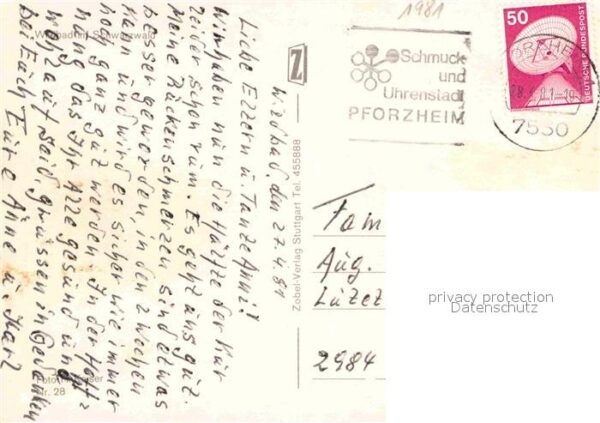 Wildbad im Schwarzwald
Wildbad, den 27.4.81
Liebe Eltern u. Tante Anni!
Wir haben nun die Hälfte der Kur
leider schon rum. Es geht uns gut.
Meine Rückenschmerzen sind etwas
besser geworden, in den 2 Wochen
kann und wird es sicher wie immer
noch ganz gut werden. In der Hoff=
nung das Ihr Alle gesund und
wohlauf seid grüssen in Gedanken
bei Euch Eure Anne u. Karl
Nr. 28
Z
Zobel-Verlag Stuttgart Tel. 455888
1981
Schmuck
und
Uhrenstadt
PFORZHEIM
50
DEUTSCHE BUNDESPOST
7530
Fam
Aug.
Lützel
2984
privacy protection
Datenschutz